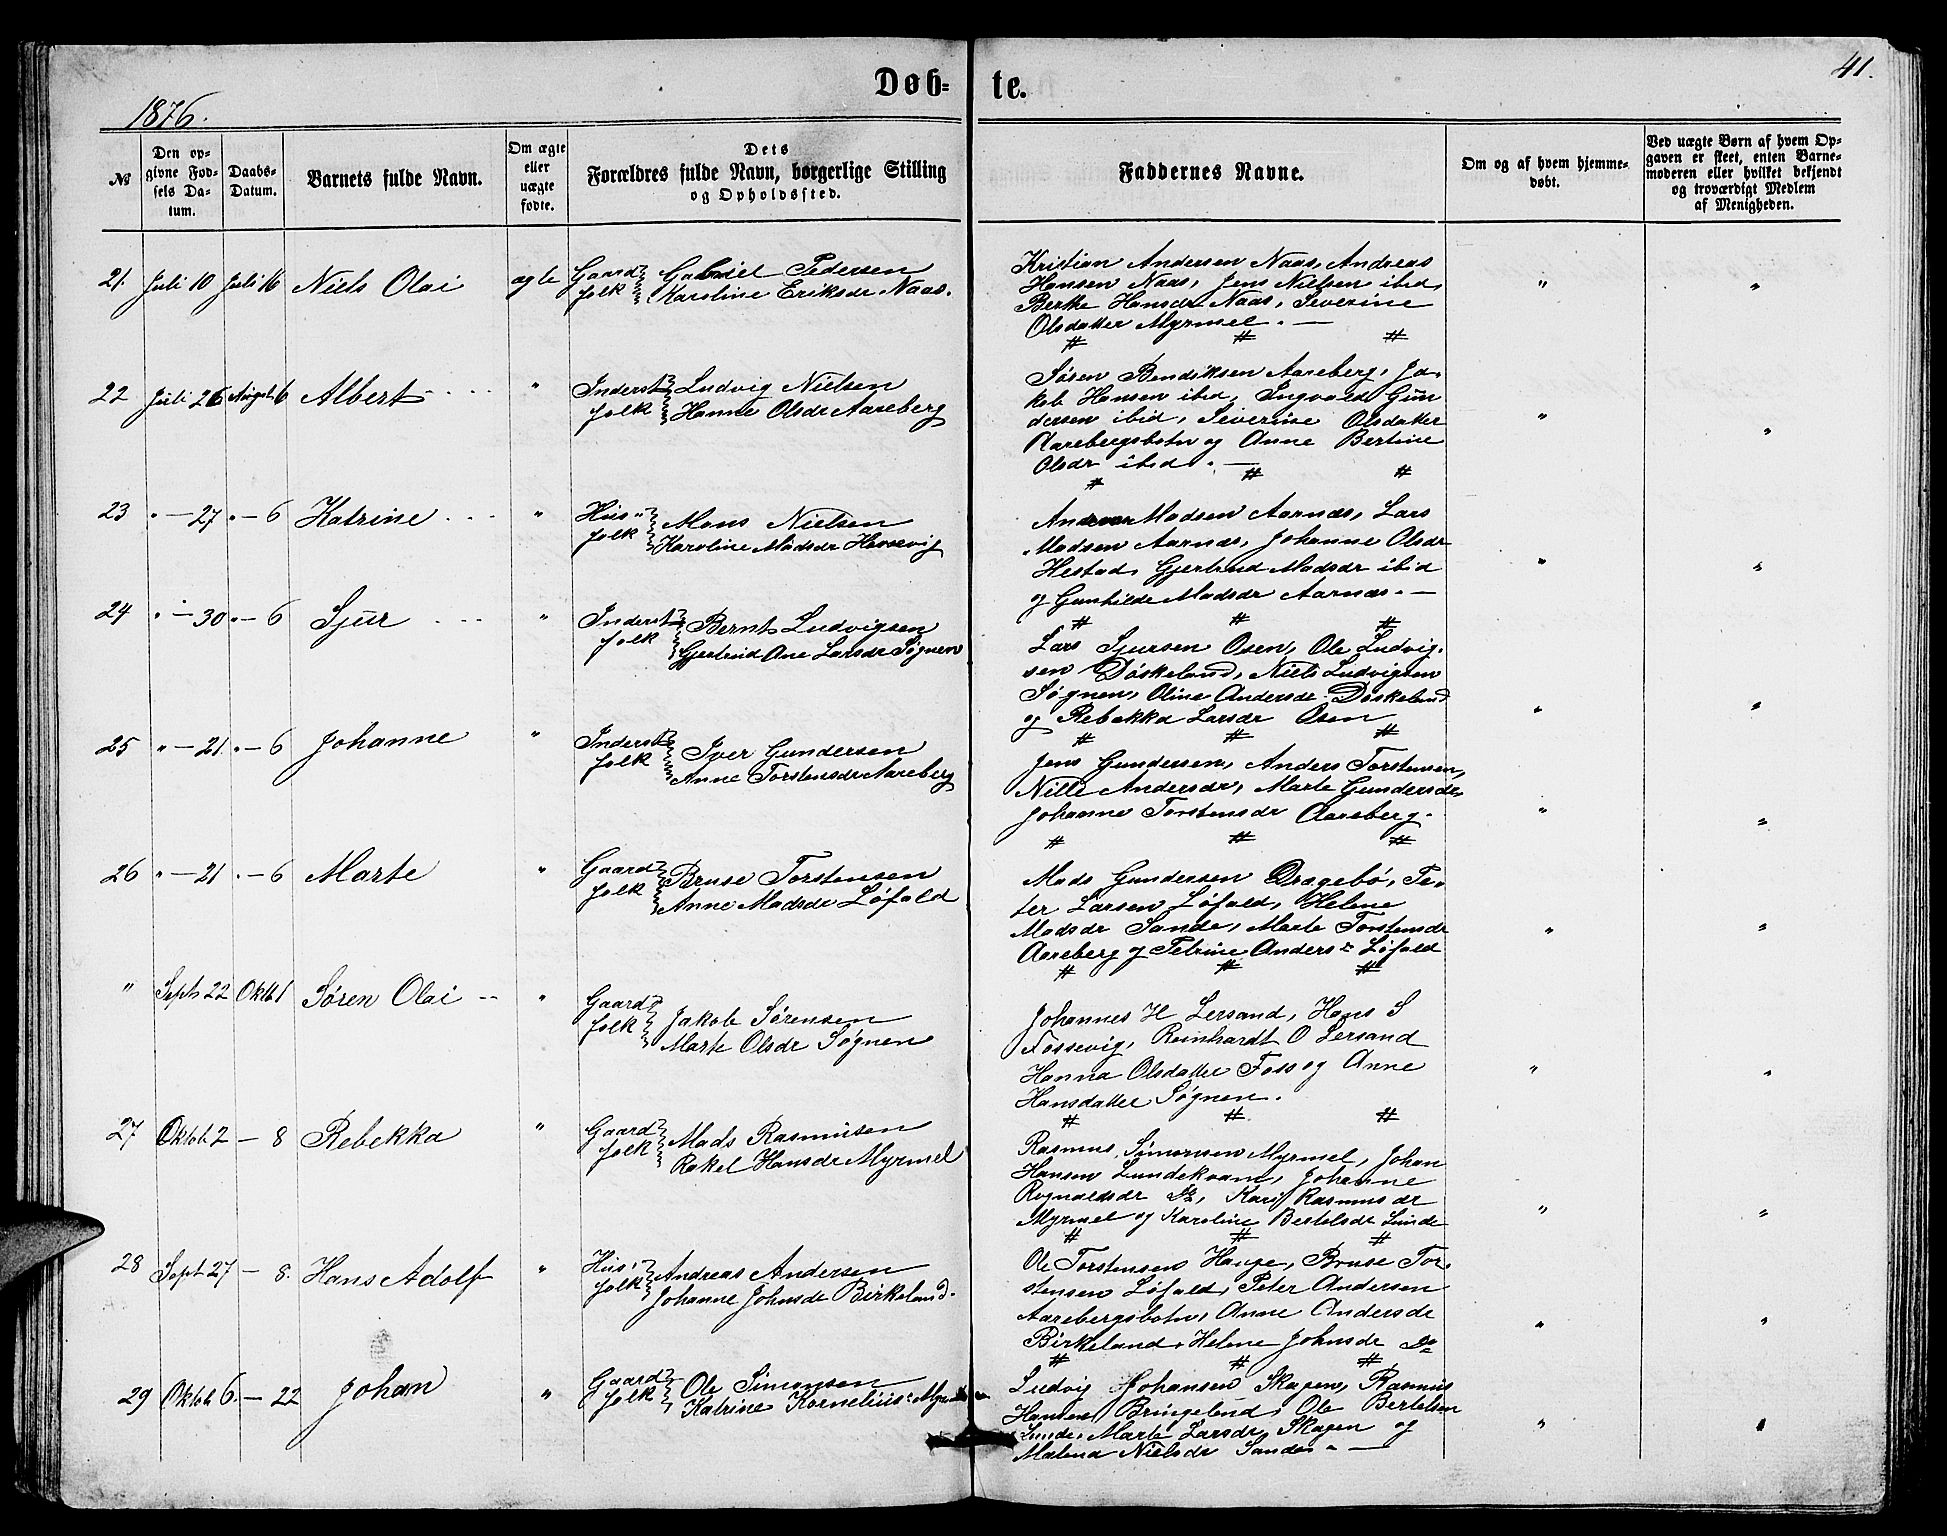 41.
Døb-
te.
1876.
№
Den op-
givne Fød-
sels Da-
tum.
Daabs-
Datum.
Barnets fulde Navn.
Om ægte
eller
uægte
fødte.
Dets
Forældres fulde Navn, borgerlige Stilling
og Opholdssted.
Faddernes Navne.
Om og af hvem hjemme-
døbt.
Ved uægte Børn af hvem Op-
gaven er skeet, enten Barne-
moderen eller hvilket bekjendt
og troværdigt Medlem
af Menigheden.
21. Juli 10 Juli 16 Niels Olai ægte Gaard
folk Gabriel Pedersen
Karoline Eriksdr Naas.
Kristian Andersen Naas, Andreas
Hansen Naas, Jens Nielsen ibid,
Berthe Hansdr Naas, Severine
Olsdatter Myrmel. —
22 Juli 26 August 6 Albert " Inderst
folk Ludvig Nielsen
Hanne Olsdr Aareberg
Søren Bendiksen Aareberg, Ja-
kob Hansen ibid, Ingvald Gun
dersen ibid, Severine Olsdatter
Aarebergsbotn og Anne Bertine
Olsdr ibid. —
23 " — 27 " — 6 Katrine " Hus"
folk Mons Nielsen
Karoline Madsdr
Madsen Aarnæs, Lars
Madsen Aarnæs, Johanne Olsdr
Hestad, Gjertrud Madsdr ibid
og Gunhilde Madsdr Aarnæs. —
24 " — 30 " — 6 Sjur " Inderst
folk Bernt Ludvigsen
Gjertrud Ane Larsdr Søgnen
Lars Sjursen Osen, Ole Ludvig-
sen Døskeland, Niels Ludvigsen
Søgnen, Oline Andersdr Døskeland
og Rebekka Larsdr Osen
25 " — 21. " — 6 Johanne " Inderst
folk Iver Gundersen
Anne Torstensdr Aareberg
Jens Gundersen, Anders Torstensen,
Nille Andersdr, Marte Gundersdr,
Johanne Torstensdr Aareberg.
26 " — 21 " — 6 Marte " Gaard
folk Bruse Torstensen
Anne Madsdr Løfald
Mads Gundersen Dragebø, Pe-
ter Larsen Løfald, Helene
Madsdr Sande, Marte Torstensdr
Aareberg og Petrine Anders Løfald
" Septr 22 Oktb 1 Søren Olai " Gaard
folk Jakob Sørensen
Marte Olsdr Søgnen
Johannes H Lersand, Hans S
Fossevig, Reinhardt O Lersand
Hanna Olsdatter Foss og Anne
Hansdatter Søgnen.
27 Oktob. 2 — 8 Rebekka " Gaard
folk Mads Rasmusen
Rakel Hansdr Myrmel
Rasmus Simonsen Myrmel, Johan
Hansen Lundekvam, Johanne
Rognaldsdr Do, Kari Rasmusdr
Myrmel og Karoline Bertelsdr Lunde
28 Sept 27 — 8. Hans Adolf " Hus"
folk Andreas Andersen
Johanne Johnsdr Birkeland.
Ole Torstensen Hauge, Bruse Tor-
stensen Løfald, Peter Andersen
Aarebergsbotn, Anne Andersdr
Birkeland, Helene Johnsdr Do
29 Oktob 6. — 22 Johan " Gaard
folk Ole Simonsen
Katrine Kornelius
Ludvig Johansen Skagen, Rasmus
Hansen Bringeland, Ole Bertelsen
Lunde, Marte Larsdr Skagen og
Malena Nielsdr Sande. —